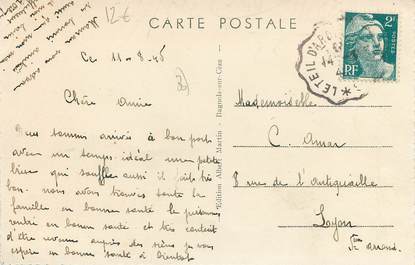 12€
CARTE POSTALE
Ce 11-8-46
Chère Amie
sommes arrivés à bon port
avec un temps idéal une petite
bise qui souffle aussi il fait très
bon. nous avons trouvés toute la
famille en bonne santé le prisonnier
rentré en bonne santé et très content
d'être revenu auprès des siens je vous
espère en bonne santé à bientôt
Edition Albert Martin - Bagnols-sur-Cèze
LE TEIL D'
2F
POSTES
RF
Mademoiselle
C. Amar
8 rue de l'Antiquaille
Lyon
5ème arrond.